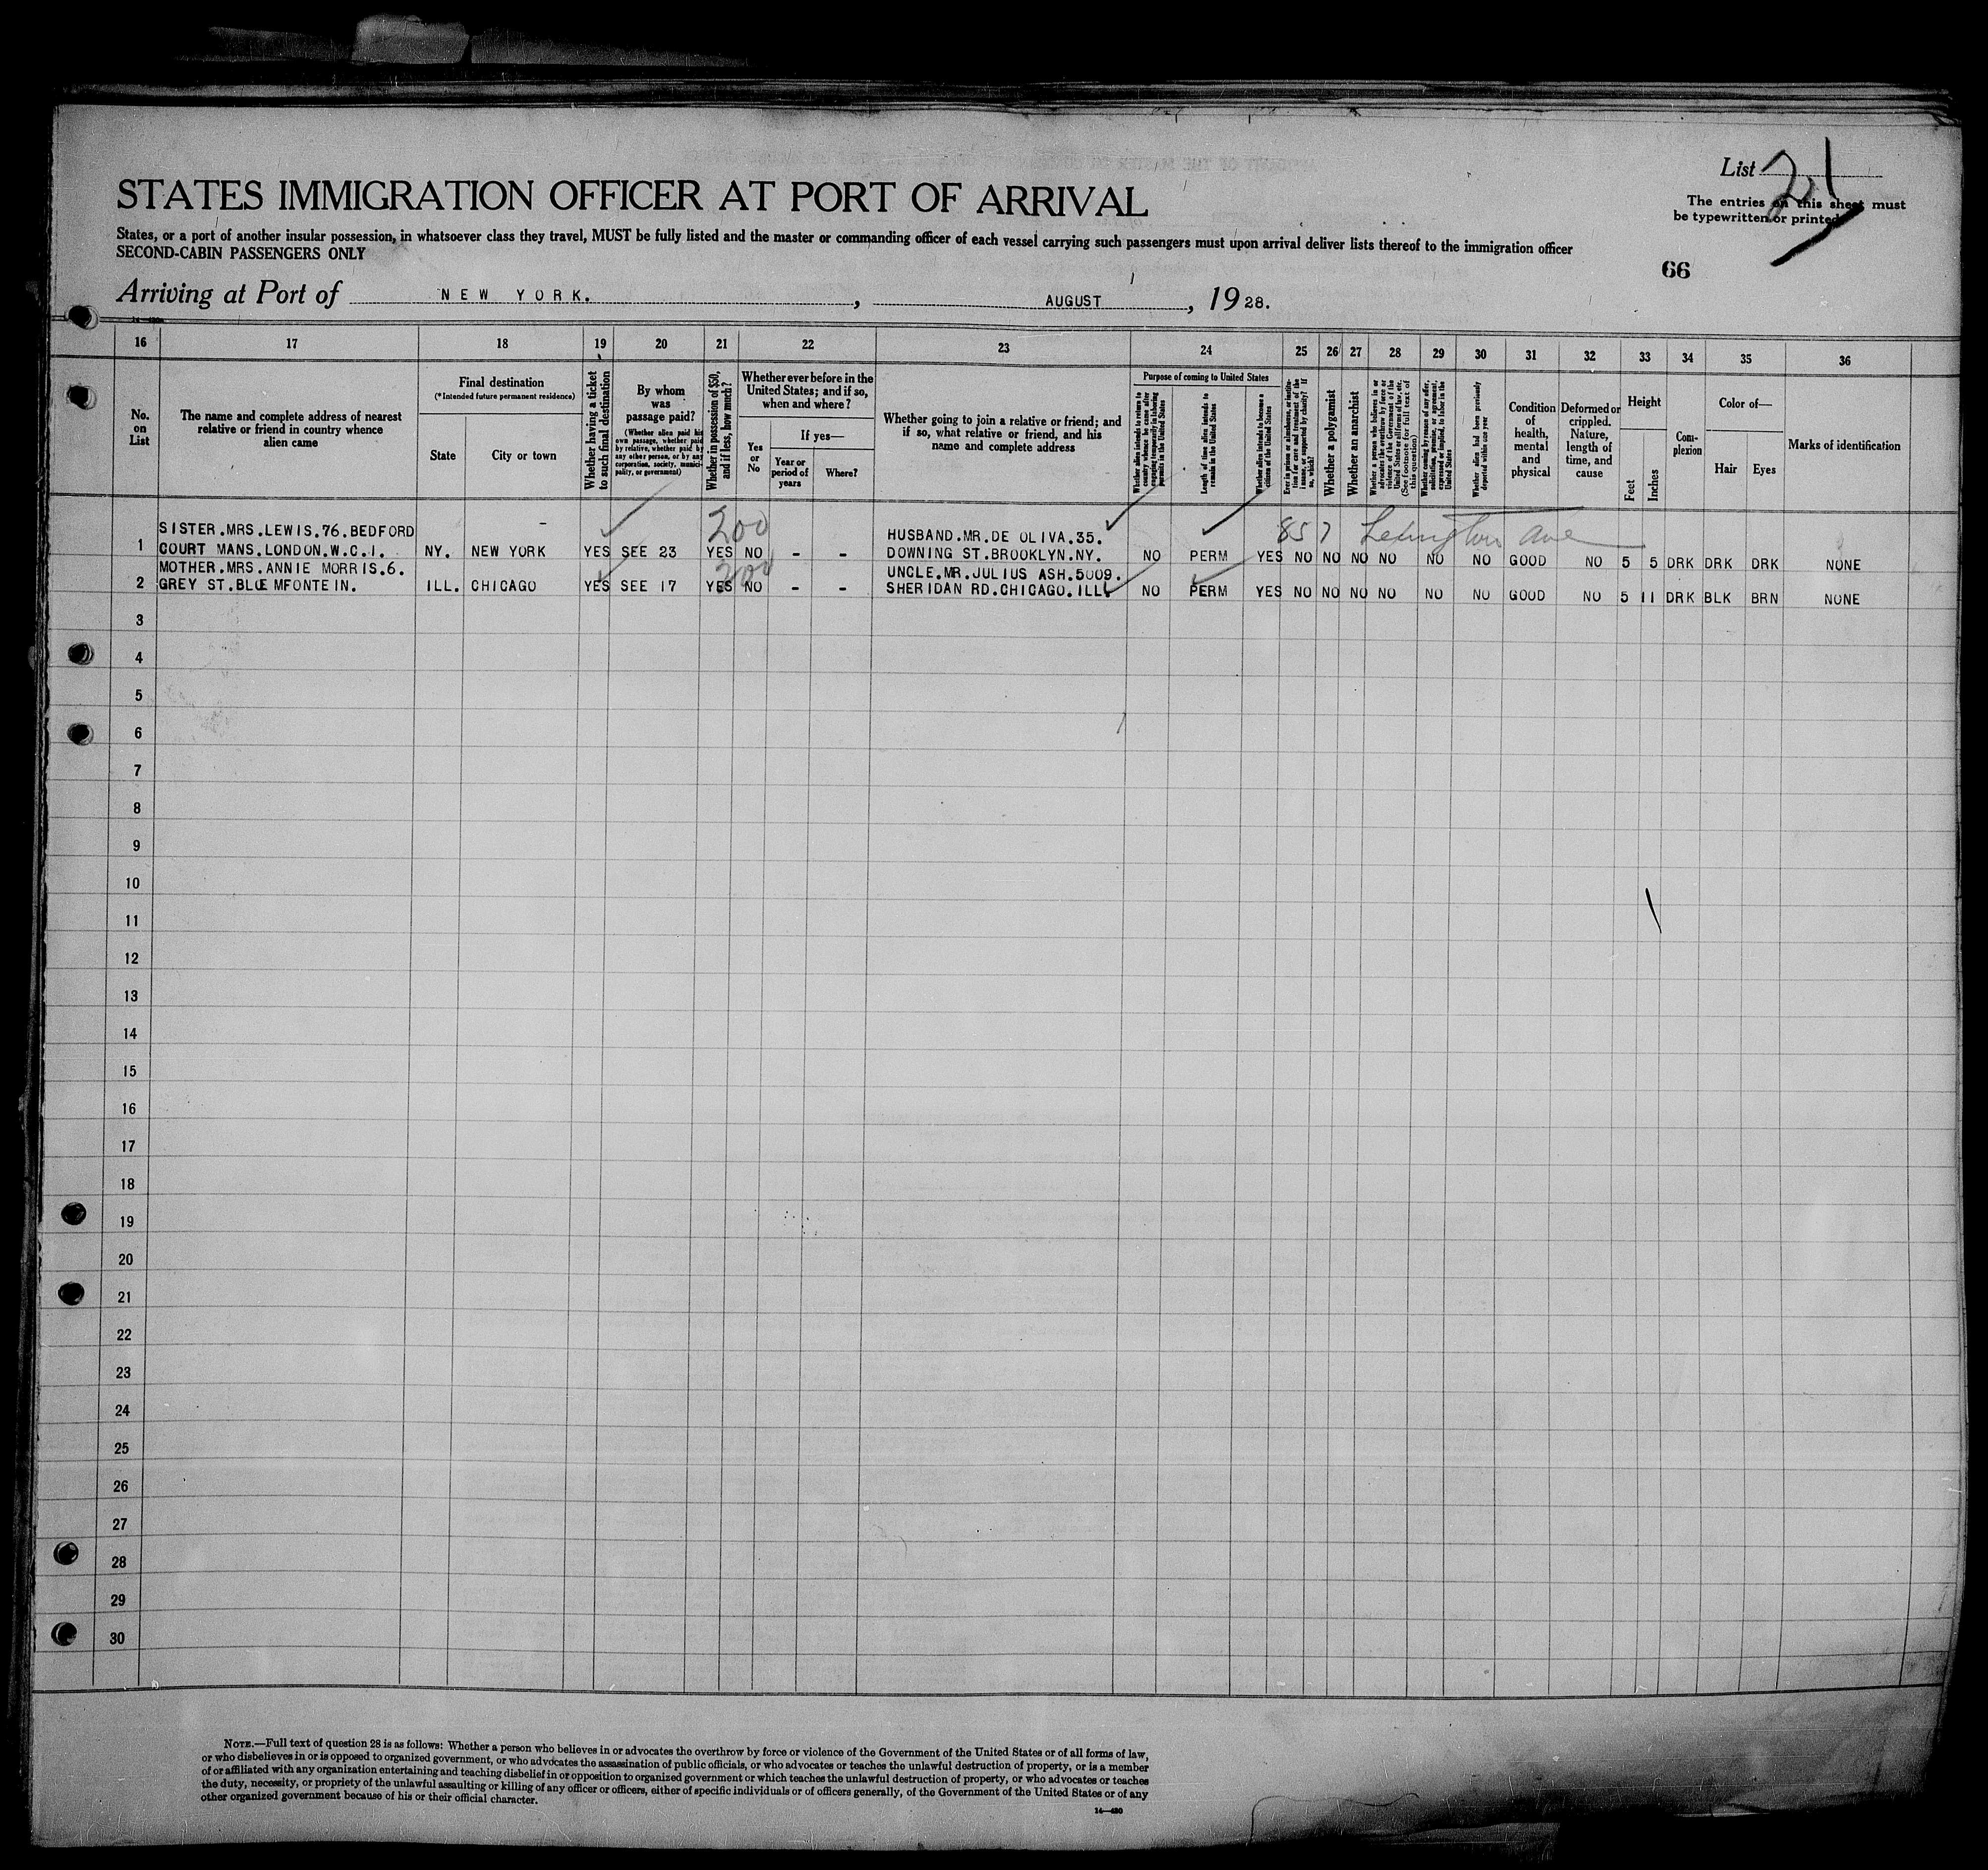 List 21
The entries on this sheet must
be typewritten or printed
STATES IMMIGRATION OFFICER AT PORT OF ARRIVAL
States, or a port of another insular possession, in whatsoever class they travel, MUST be fully listed and the master or commanding officer of each vessel carrying such passengers must upon arrival deliver lists thereof to the immigration officer
SECOND-CABIN PASSENGERS ONLY
66
Arriving at Port of NEW YORK., AUGUST, 1928.
16 17 18 19 20 21 22 23 24 25 26 27 28 29 30 31 32 33 34 35 36
No. on List
The name and complete address of nearest relative or friend in country whence alien came
Final destination
(*Intended future permanent residence)
State
City or town
Whether having a ticket to such final destination
By whom was passage paid?
(Whether alien paid his own passage, whether paid by relative, whether paid by any other person, or by any corporation, society, municipality, or government)
Whether in possession of $50, and if less, how much?
Whether ever before in the United States; and if so, when and where?
Yes or No
If yes—
Year or period of years
Where?
Whether going to join a relative or friend; and if so, what relative or friend, and his name and complete address
Purpose of coming to United States
Whether alien intends to return to country whence he came after engaging temporarily in laboring pursuits in the United States
Length of time alien intends to remain in the United States
Whether alien intends to become a citizen of the United States
Ever in prison or almshouse, or institution for care and treatment of the insane, or supported by charity? If so, which?
Whether a polygamist
Whether an anarchist
Whether a person who believes in or advocates the overthrow by force or violence of the Government of the United States or all forms of law, etc. (See footnote for full text of this question)
Whether coming by reason of any offer, solicitation, promise, or agreement, expressed or implied, to labor in the United States
Whether alien had been previously deported within one year
Condition of health, mental and physical
Deformed or crippled. Nature, length of time, and cause
Height
Feet
Inches
Complexion
Color of—
Hair
Eyes
Marks of identification
200
857 Lexington Ave
SISTER.MRS.LEWIS.76.BEDFORD HUSBAND.MR.DE OLIVA.35.
1 COURT MANS.LONDON.W.C.1. NY. NEW YORK YES SEE 23 YES NO - - DOWNING ST.BROOKLYN.NY. NO PERM YES NO NO NO NO NO NO GOOD NO 5 5 DRK DRK DRK NONE
MOTHER.MRS.ANNIE MORRIS.6. 200 UNCLE.MR.JULIUS ASH.5009.
2 GREY ST.BLOEMFONTEIN. ILL. CHICAGO YES SEE 17 YES NO - - SHERIDAN RD.CHICAGO.ILL NO PERM YES NO NO NO NO NO NO GOOD NO 5 11 DRK BLK BRN NONE
3
4
5
6
7
8
9
10
11
12
13
14
15
16
17
18
19
20
21
22
23
24
25
26
27
28
29
30
NOTE.—Full text of question 28 is as follows: Whether a person who believes in or advocates the overthrow by force or violence of the Government of the United States or of all forms of law,
or who disbelieves in or is opposed to organized government, or who advocates the assassination of public officials, or who advocates or teaches the unlawful destruction of property, or is a member
of or affiliated with any organization entertaining and teaching disbelief in or opposition to organized government or which teaches the unlawful destruction of property, or who advocates or teaches
the duty, necessity, or propriety of the unlawful assaulting or killing of any officer or officers, either of specific individuals or of officers generally, of the Government of the United States or of any
other organized government because of his or their official character.
14—480